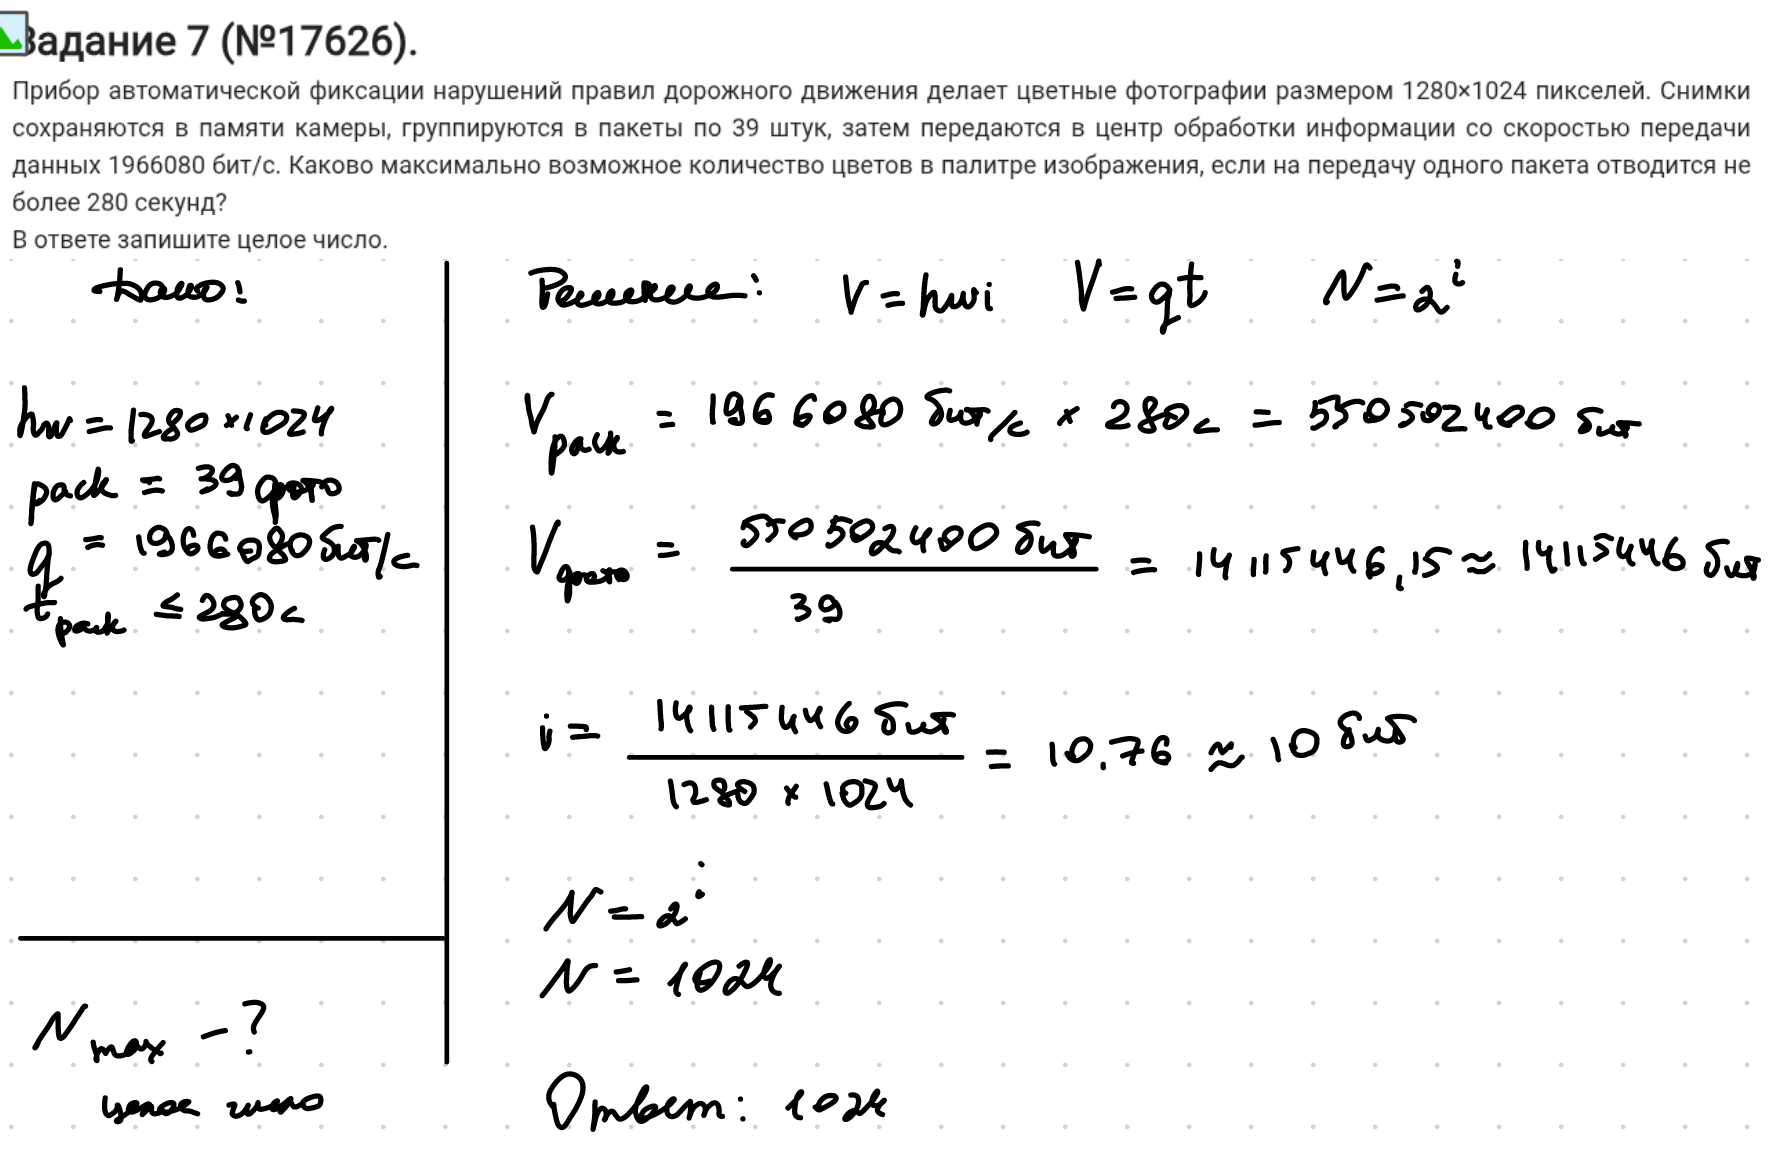 Задание 7 (№17626).
Прибор автоматической фиксации нарушений правил дорожного движения делает цветные фотографии размером 1280×1024 пикселей. Снимки
сохраняются в памяти камеры, группируются в пакеты по 39 штук, затем передаются в центр обработки информации со скоростью передачи
данных 1966080 бит/с. Каково максимально возможное количество цветов в палитре изображения, если на передачу одного пакета отводится не
более 280 секунд?
В ответе запишите целое число.
Дано:
hw = 1280 × 1024
pack = 39 фото
q = 1966080 бит/с
t pack ≤ 280 с
N max - ?
целое число
Решение: V = hwi V = qt N = 2^i
V pack = 1966080 бит/с × 280 с = 550502400 бит
V фото = 550502400 бит / 39 = 14115446,15 ≈ 14115446 бит
i = 14115446 бит / 1280 × 1024 = 10.76 ≈ 10 бит
N = 2^i
N = 1024
Ответ: 1024